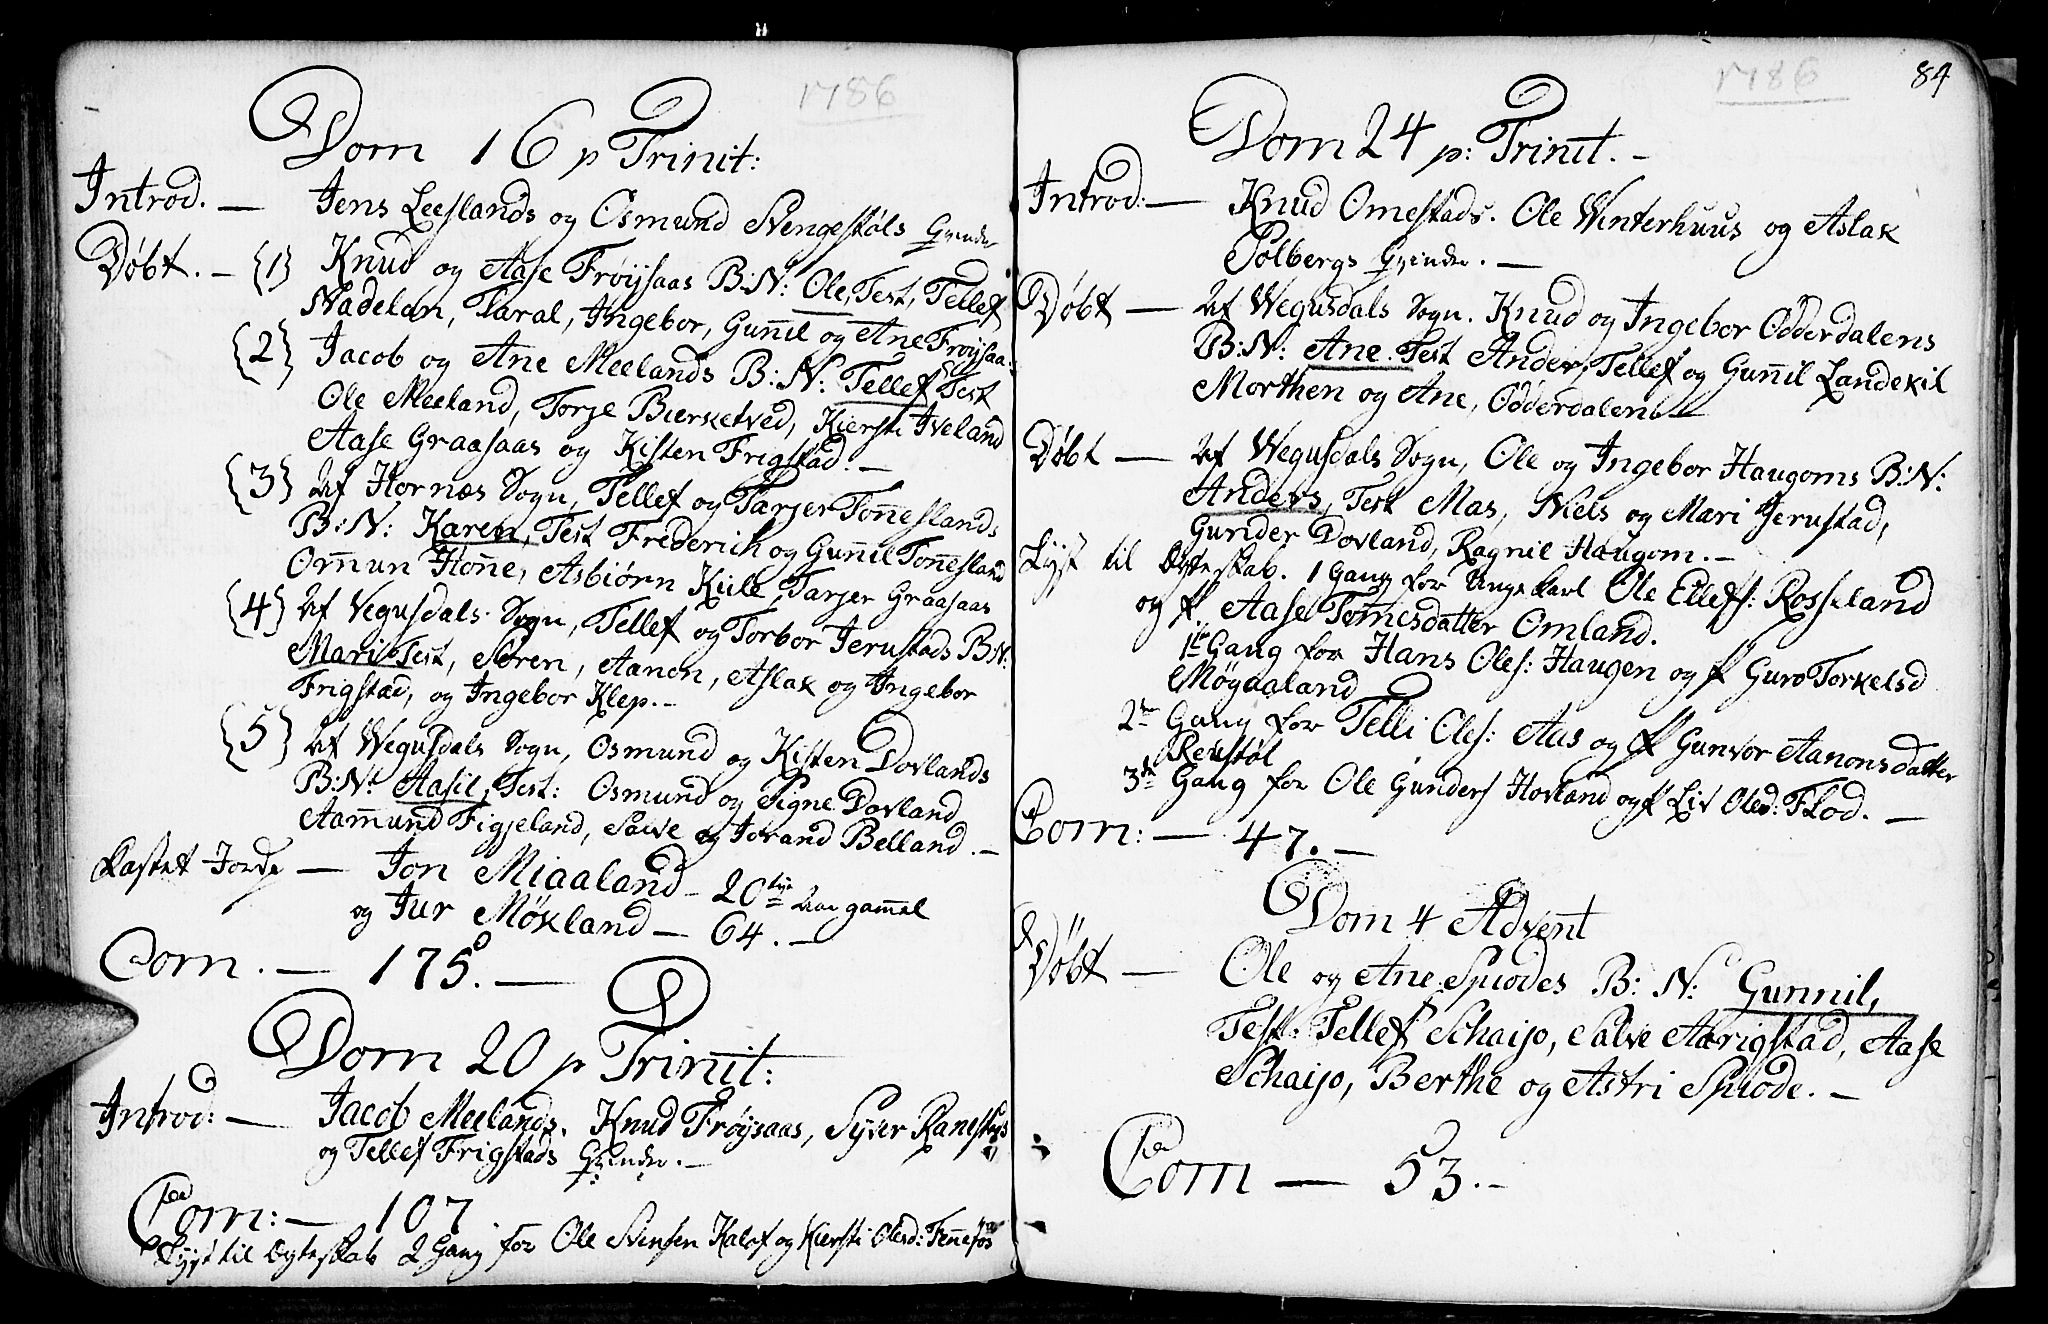 1786
Dom 16 p Trinit:
Introd. — Jens Leeslands og Osmund Svengestøls Qvinder
Døbt. — {1} Knud og Aase Frøijsaas B:N: Ole, Test, Tellef
Nadelan, Taral, Ingebor, Guñil og Ane Frøysaas
{2} Jacob og Ane Meelands B:N: Tellef Test
Ole Meeland, Torje Bierketved, Kiersti Iveland
Aase Graasaas og Kisten Frigstad. —
{3} Af Hornæs Sogn, Tellef og Tarjer Toñeslands
B:N: Karen, Test Frederich og Guñil Toñesland
Omun Hoñe, Asbiørn Kiile, Tarjer Graasaas
{4} Af Vegusdals Sogn, Tellef og Torbor Jerustads B:N:
Mari Test, Søren, Aanon, Aslak og Ingebor
Frigstad, og Ingebor Klep. –
{5} Af Wegusdals Sogn, Osmund og Kisten Dovlands
B:N: Aasil, Test: Osmund og Signe Dovland
Aamund Figjeland, Salve og Jorand Belland. —
Kastet Jord paa — Jon Miaaland – 20 tyve Aar gam̄el
og Jur Møkland — 64. —
Com. — 175. —
Dom 20 p Trinit:
Introd: — Jacob Meelands, Knud Frøysaas, Syver Ranestøls
og Tellef Frigstads Qvinder. —
Com: — 107.
Lyst til Ægteskab 2 Gang for Ole Svensen Kalef og Kiersti Olesd: Feñefos
1786
84
Dom 24 p: Trinit. –
Introd: — Knud Omestads. Ole Winterhuus og Aslak
Solbergs Qvinder. —
Døbt — Af Wegusdals Sogn. Knud og Ingebor Odderdalens
B:N: Ane. Test Anders, Tellef og Guñil Landekil
Morthen og Ane, Odderdalens
Døbt — Af Wegusdals Sogn, Ole og Ingebor Haugoms B:N:
Anders, Test Mas, Niels og Mari Jerustad,
Gunder Dovland, Ragnil Haugom. –
Lyst til Ægteskab. 1 Gang for Ungekarl Ole Ellefs: Rosseland
og P. Aase Tomesdatter Omland.
1te Gang for Hans Oles: Haugen og P Guro Torkelsd
Møgaaland
2de Gang for Telli Oles: Aas og P Gunvor Aanonsdatter
Reiestøl
3de Gang for Ole Gunders Hovland og P Liv Olesd: Flod. —
Com: — 47. —
Dom 4 Advent
Døbt — Ole og Ane Spiodes B: N: Gunnil,
Test: Tellef Schaijo, Salve Aarigstad, Aase
Schaijo, Berthe og Astri Spiode. —
Com — 53. –